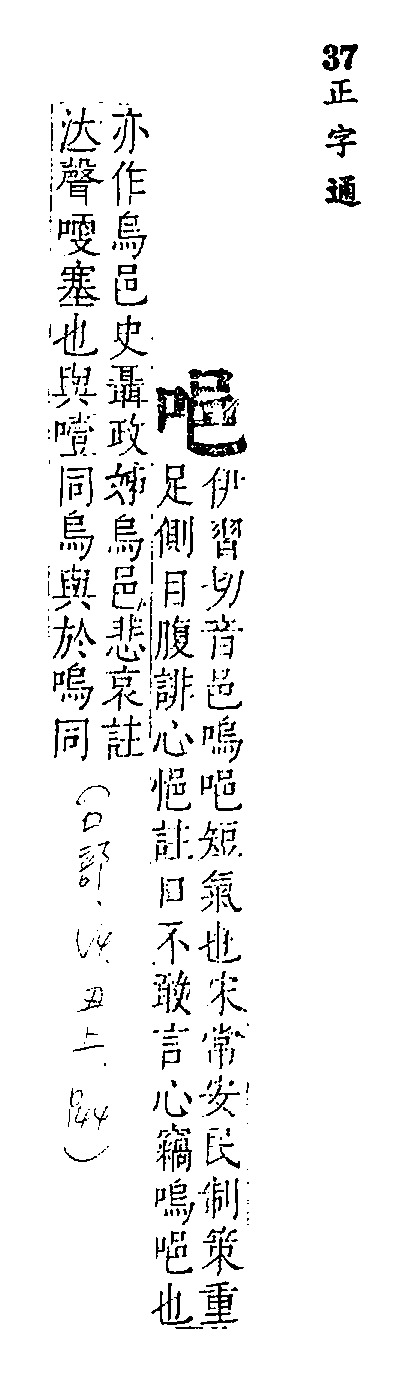 37
正字通
唈
伊習切音邑嗚唈短氣也宋常安民制策重
足側目腹誹心悒註口不敢言心竊嗚唈也
亦作烏邑史聶政姊烏邑悲哀註
汏聲嗄塞也與噎同烏與於嗚同
(口部、V4、丑上、P.44)